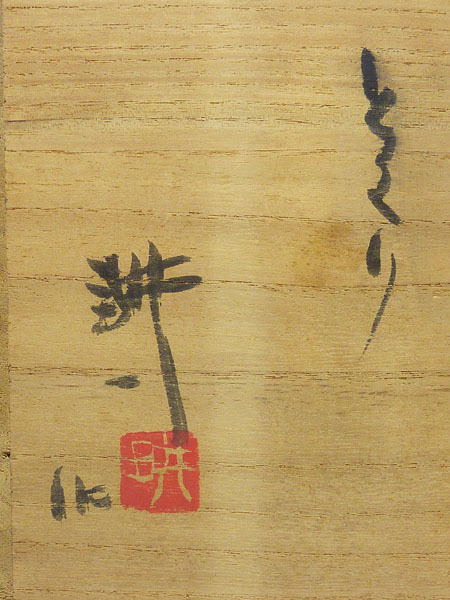 とくり
耕一
作
畊